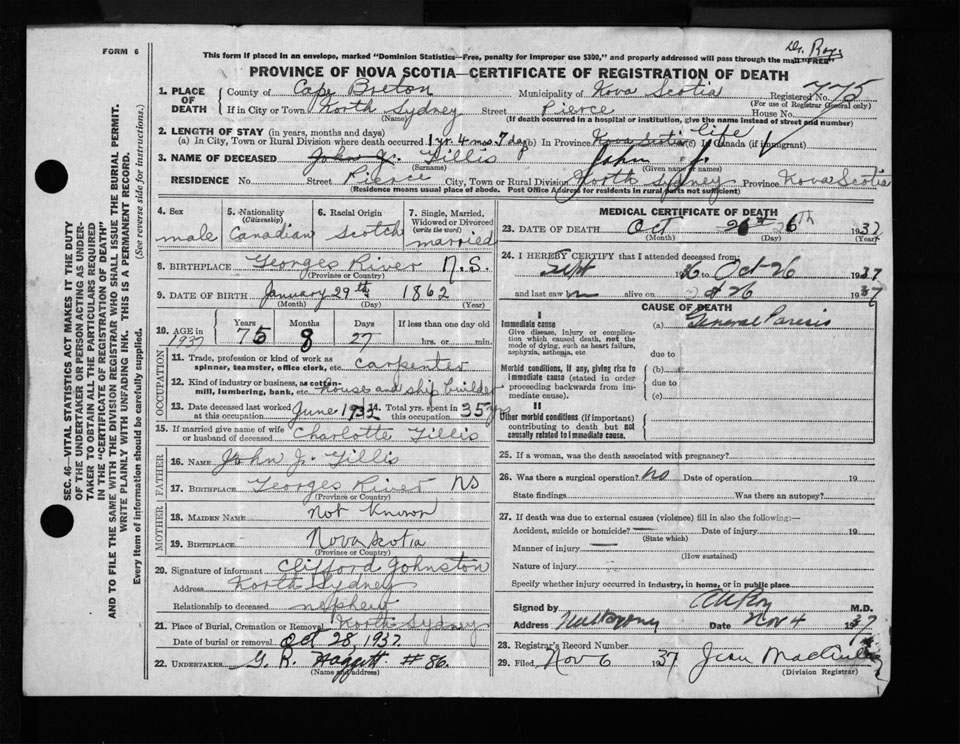 FORM 6
This form if placed in an envelope, marked "Dominion Statistics—Free, penalty for improper use $300," and properly addressed will pass through the mail "FREE"
PROVINCE OF NOVA SCOTIA—CERTIFICATE OF REGISTRATION OF DEATH
1. PLACE OF DEATH County of Cape Breton Municipality of Nova Scotia Registered No. 775
(For use of Registrar General only)
If in City or Town North Sydney Street Pierce House No.
(Name) (If death occurred in a hospital or institution, give the name instead of street and number)
2. LENGTH OF STAY (in years, months and days)
(a) In City, Town or Rural Division where death occurred 1 yr. 4 mos. 7 da (b) In Province Nova Scotia (c) In Canada (if immigrant) life
3. NAME OF DECEASED Gillis John J.
(Surname) (Given name or names)
RESIDENCE No. Street Pierce City, Town or Rural Division North Sydney Province Nova Scotia
(Residence means usual place of abode. Post Office Address for residents in rural parts not sufficient)
4. Sex 5. Nationality (Citizenship) 6. Racial Origin 7. Single, Married, Widowed or Divorced (write the word)
male Canadian Scotch married
8. BIRTHPLACE Georges River N.S.
(Province or Country)
9. DATE OF BIRTH January 29th 1862
(Month) (Day) (Year)
10. AGE in 1937 Years Months Days If less than one day old
75 8 27 hrs. or min.
OCCUPATION
11. Trade, profession or kind of work as spinner, teamster, office clerk, etc. carpenter
12. Kind of industry or business, as cotton-mill, lumbering, bank, etc. house and ship builder
13. Date deceased last worked at this occupation June Total yrs. spent in this occupation 35 yrs
15. If married give name of wife or husband of deceased Charlotte Gillis
FATHER
16. NAME John J. Gillis
17. BIRTHPLACE Georges River NS
(Province or Country)
MOTHER
18. MAIDEN NAME Not Known
19. BIRTHPLACE Nova Scotia
(Province or Country)
20. Signature of informant Clifford Johnston
Address North Sydney
Relationship to deceased nephew
21. Place of Burial, Cremation or Removal North Sydney
Date of burial or removal Oct 28, 1937
22. UNDERTAKER G. R. Haggett # 86.
(Name and address)
MEDICAL CERTIFICATE OF DEATH
23. DATE OF DEATH Oct 26th 1937
(Month) (Day) (Year)
24. I HEREBY CERTIFY that I attended deceased from:
Sept 1936 to Oct 26 1937
and last saw him alive on 26 1937
CAUSE OF DEATH
I
Immediate cause (a) General Paresis
Give disease, injury or complication which caused death, not the mode of dying, such as heart failure, asphyxia, asthenia, etc. due to
Morbid conditions, if any, giving rise to immediate cause (stated in order proceeding backwards from immediate cause). (b)
due to
(c)
II
Other morbid conditions (if important) contributing to death but not causally related to immediate cause.
25. If a woman, was the death associated with pregnancy?
26. Was there a surgical operation? No Date of operation 19
State findings Was there an autopsy?
27. If death was due to external causes (violence) fill in also the following:—
Accident, suicide or homicide? Date of injury 19
(State which)
Manner of injury
(How sustained)
Nature of injury
Specify whether injury occurred in industry, in home, or in public place
Signed by M.D.
Address Date Nov 4 1937
28. Registrar's Record Number
29. Filed Nov 6 1937 Jean
(Division Registrar)
SEC. 46—VITAL STATISTICS ACT MAKES IT THE DUTY
OF THE UNDERTAKER OR PERSON ACTING AS UNDER-
TAKER TO OBTAIN ALL THE PARTICULARS REQUIRED
IN THE "CERTIFICATE OF REGISTRATION OF DEATH"
AND TO FILE THE SAME WITH THE DIVISION REGISTRAR WHO SHALL ISSUE THE BURIAL PERMIT.
WRITE PLAINLY WITH UNFADING INK. THIS IS A PERMANENT RECORD.
Every item of information should be carefully supplied. (See reverse side for instructions.)